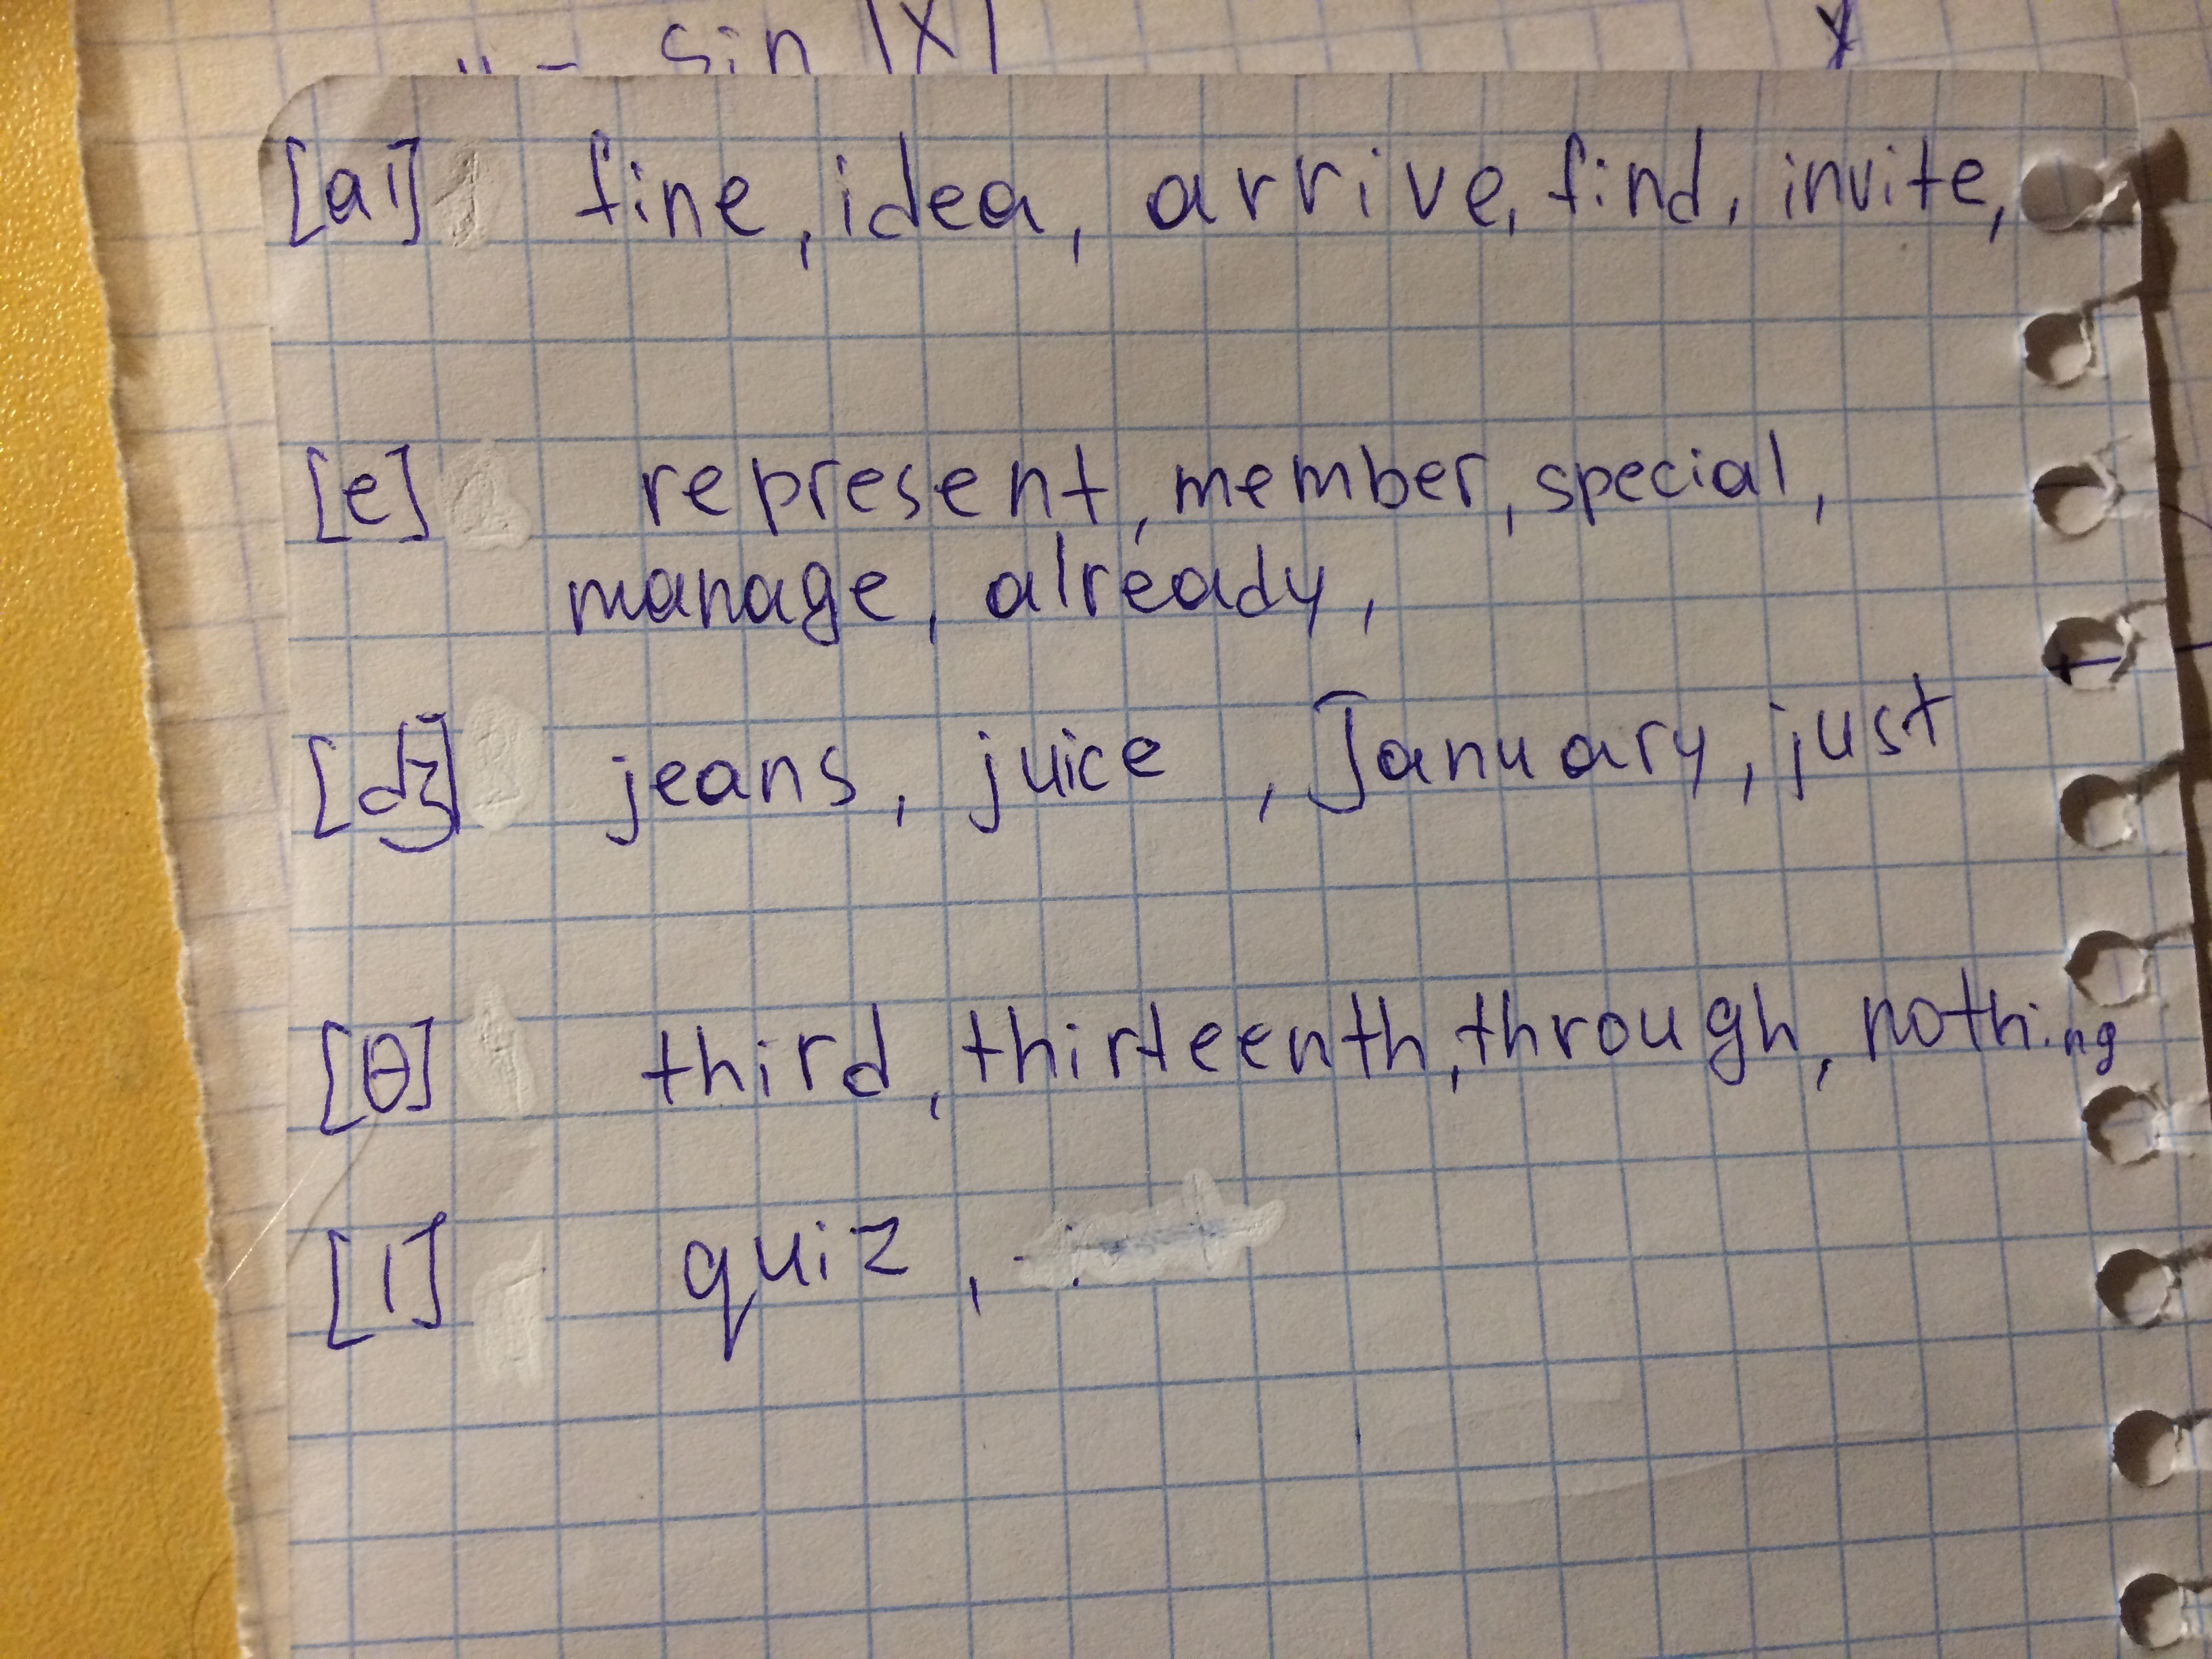 sin |x| y
[aı] fine, idea, arrive, find, invite,
[e] represent, member, special,
manage, already,
[dʒ] jeans, juice, January, just
[θ] third, thirteenth, through, nothing
[ı] quiz,